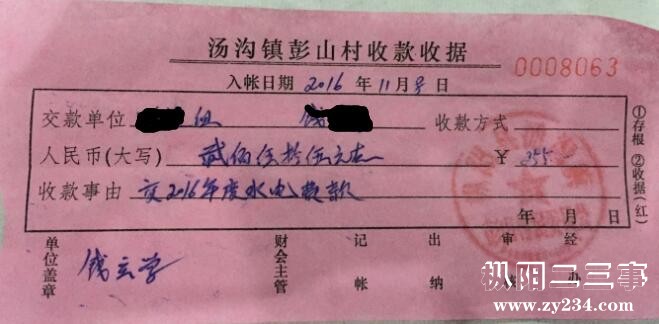 汤沟镇彭山村收款收据
0008063
入帐日期 2016 年 11 月 日
交款单位 组 钱 收款方式
人民币(大写) 贰佰伍拾伍元 ¥ 255
收款事由 交2016年度水电费款
年 月 日
①存根 ②收据(红)
单位盖章 财会主管 记帐 出纳 审 经
枞阳二三事
www.zy234.com